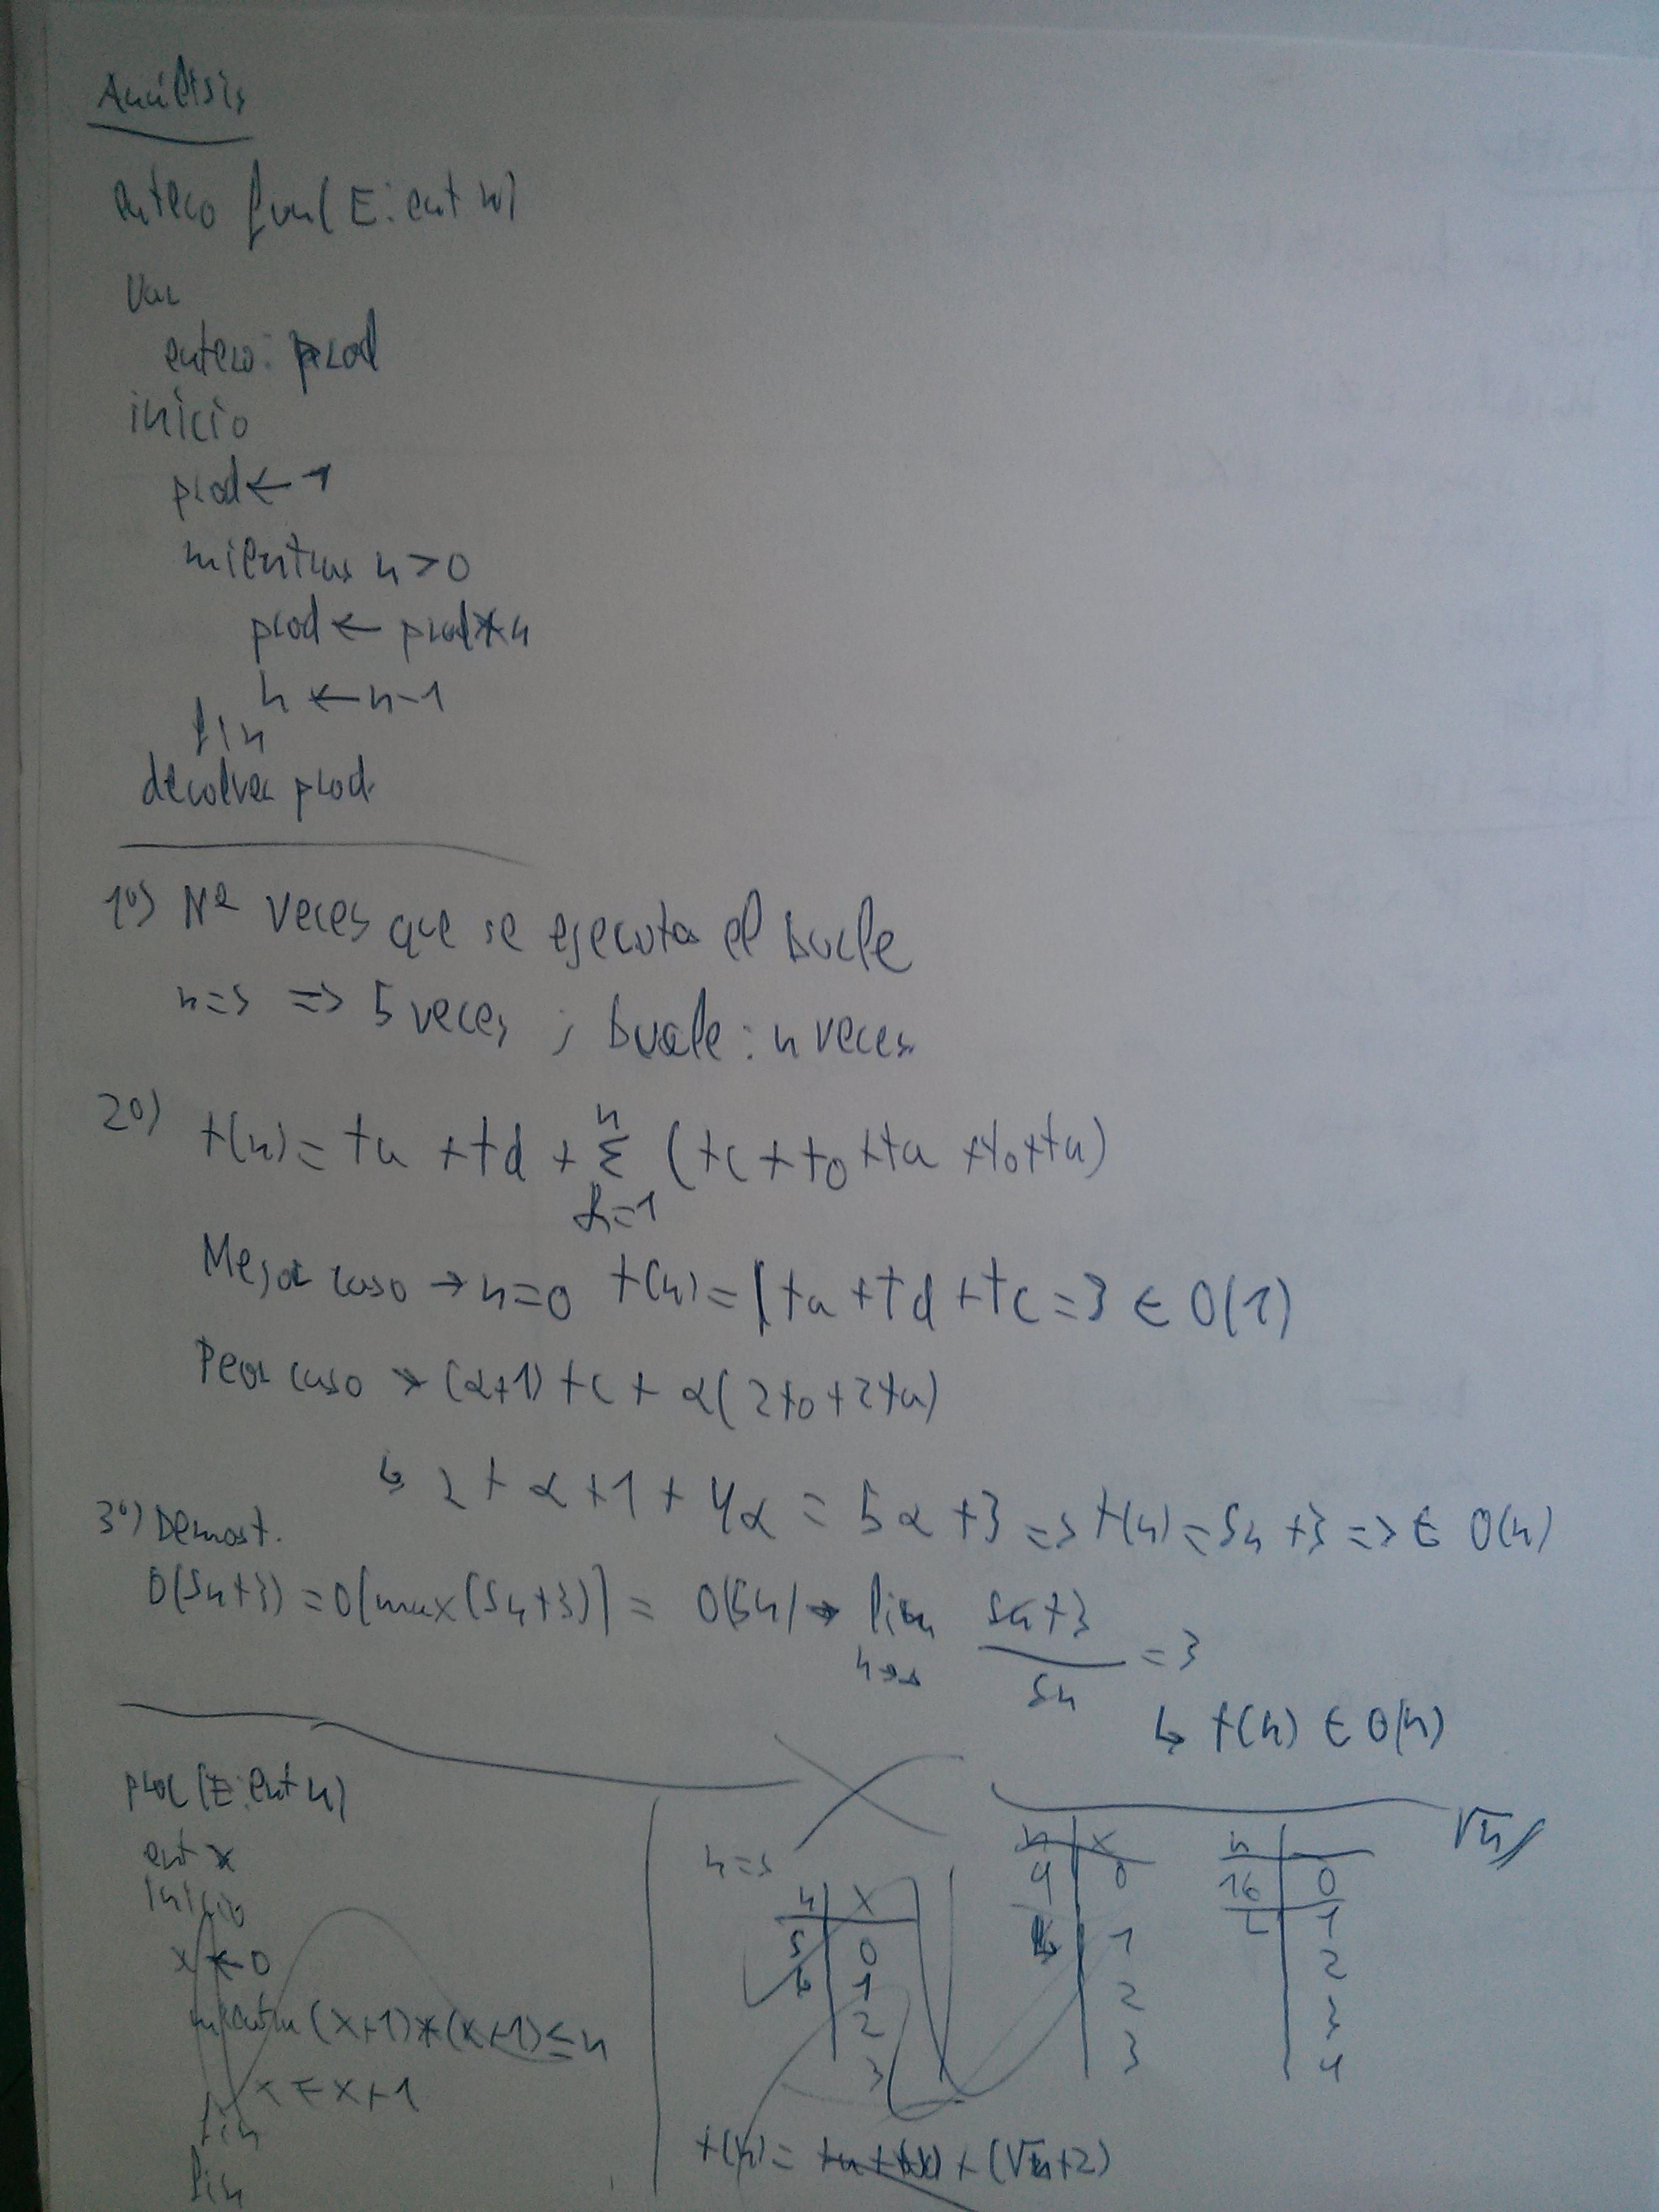 Análisis
entero fun(E: ent n)
Var
entero: prod
inicio
prod ← 1
mientras n > 0
prod ← prod * n
n ← n-1
fin
devolver prod
1º) Nº veces que se ejecuta el bucle
n=5 => 5 veces ; bucle: n veces
2º) t(n) = ta + td + Σ (tc + to + ta + to + ta)
n
k=1
Mejor caso → n=0 t(n) = 1ta + td + tc = 3 ∈ O(1)
Peor caso → (α+1) tc + α(2to + 2ta)
↳ 2 + α + 1 + 4α = 5α + 3 => t(n) = 5n + 3 => ∈ O(n)
3º) Demost.
O(5n+3) = O(max(5n+3)) = O(5n) → lim 5n+3 / 5n = 3
↳ t(n) ∈ O(n)
proc(E: ent n)
ent x
inicio
x ← 0
mientras (x+1)*(x+1) ≤ n
x ← x+1
fin
fin
n=5
n | x
5 | 0
1
2
3
n | x
9 | 0
1
2
3
n |
16 | 0
1
2
3
4
√n //
t(n) = + (√n+2)